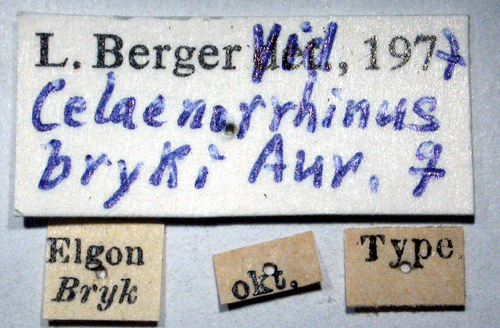 L. Berger Vid, 1977
Celaenorrhinus
bryki Aur. ♀
Elgon
Bryk
okt.
Type